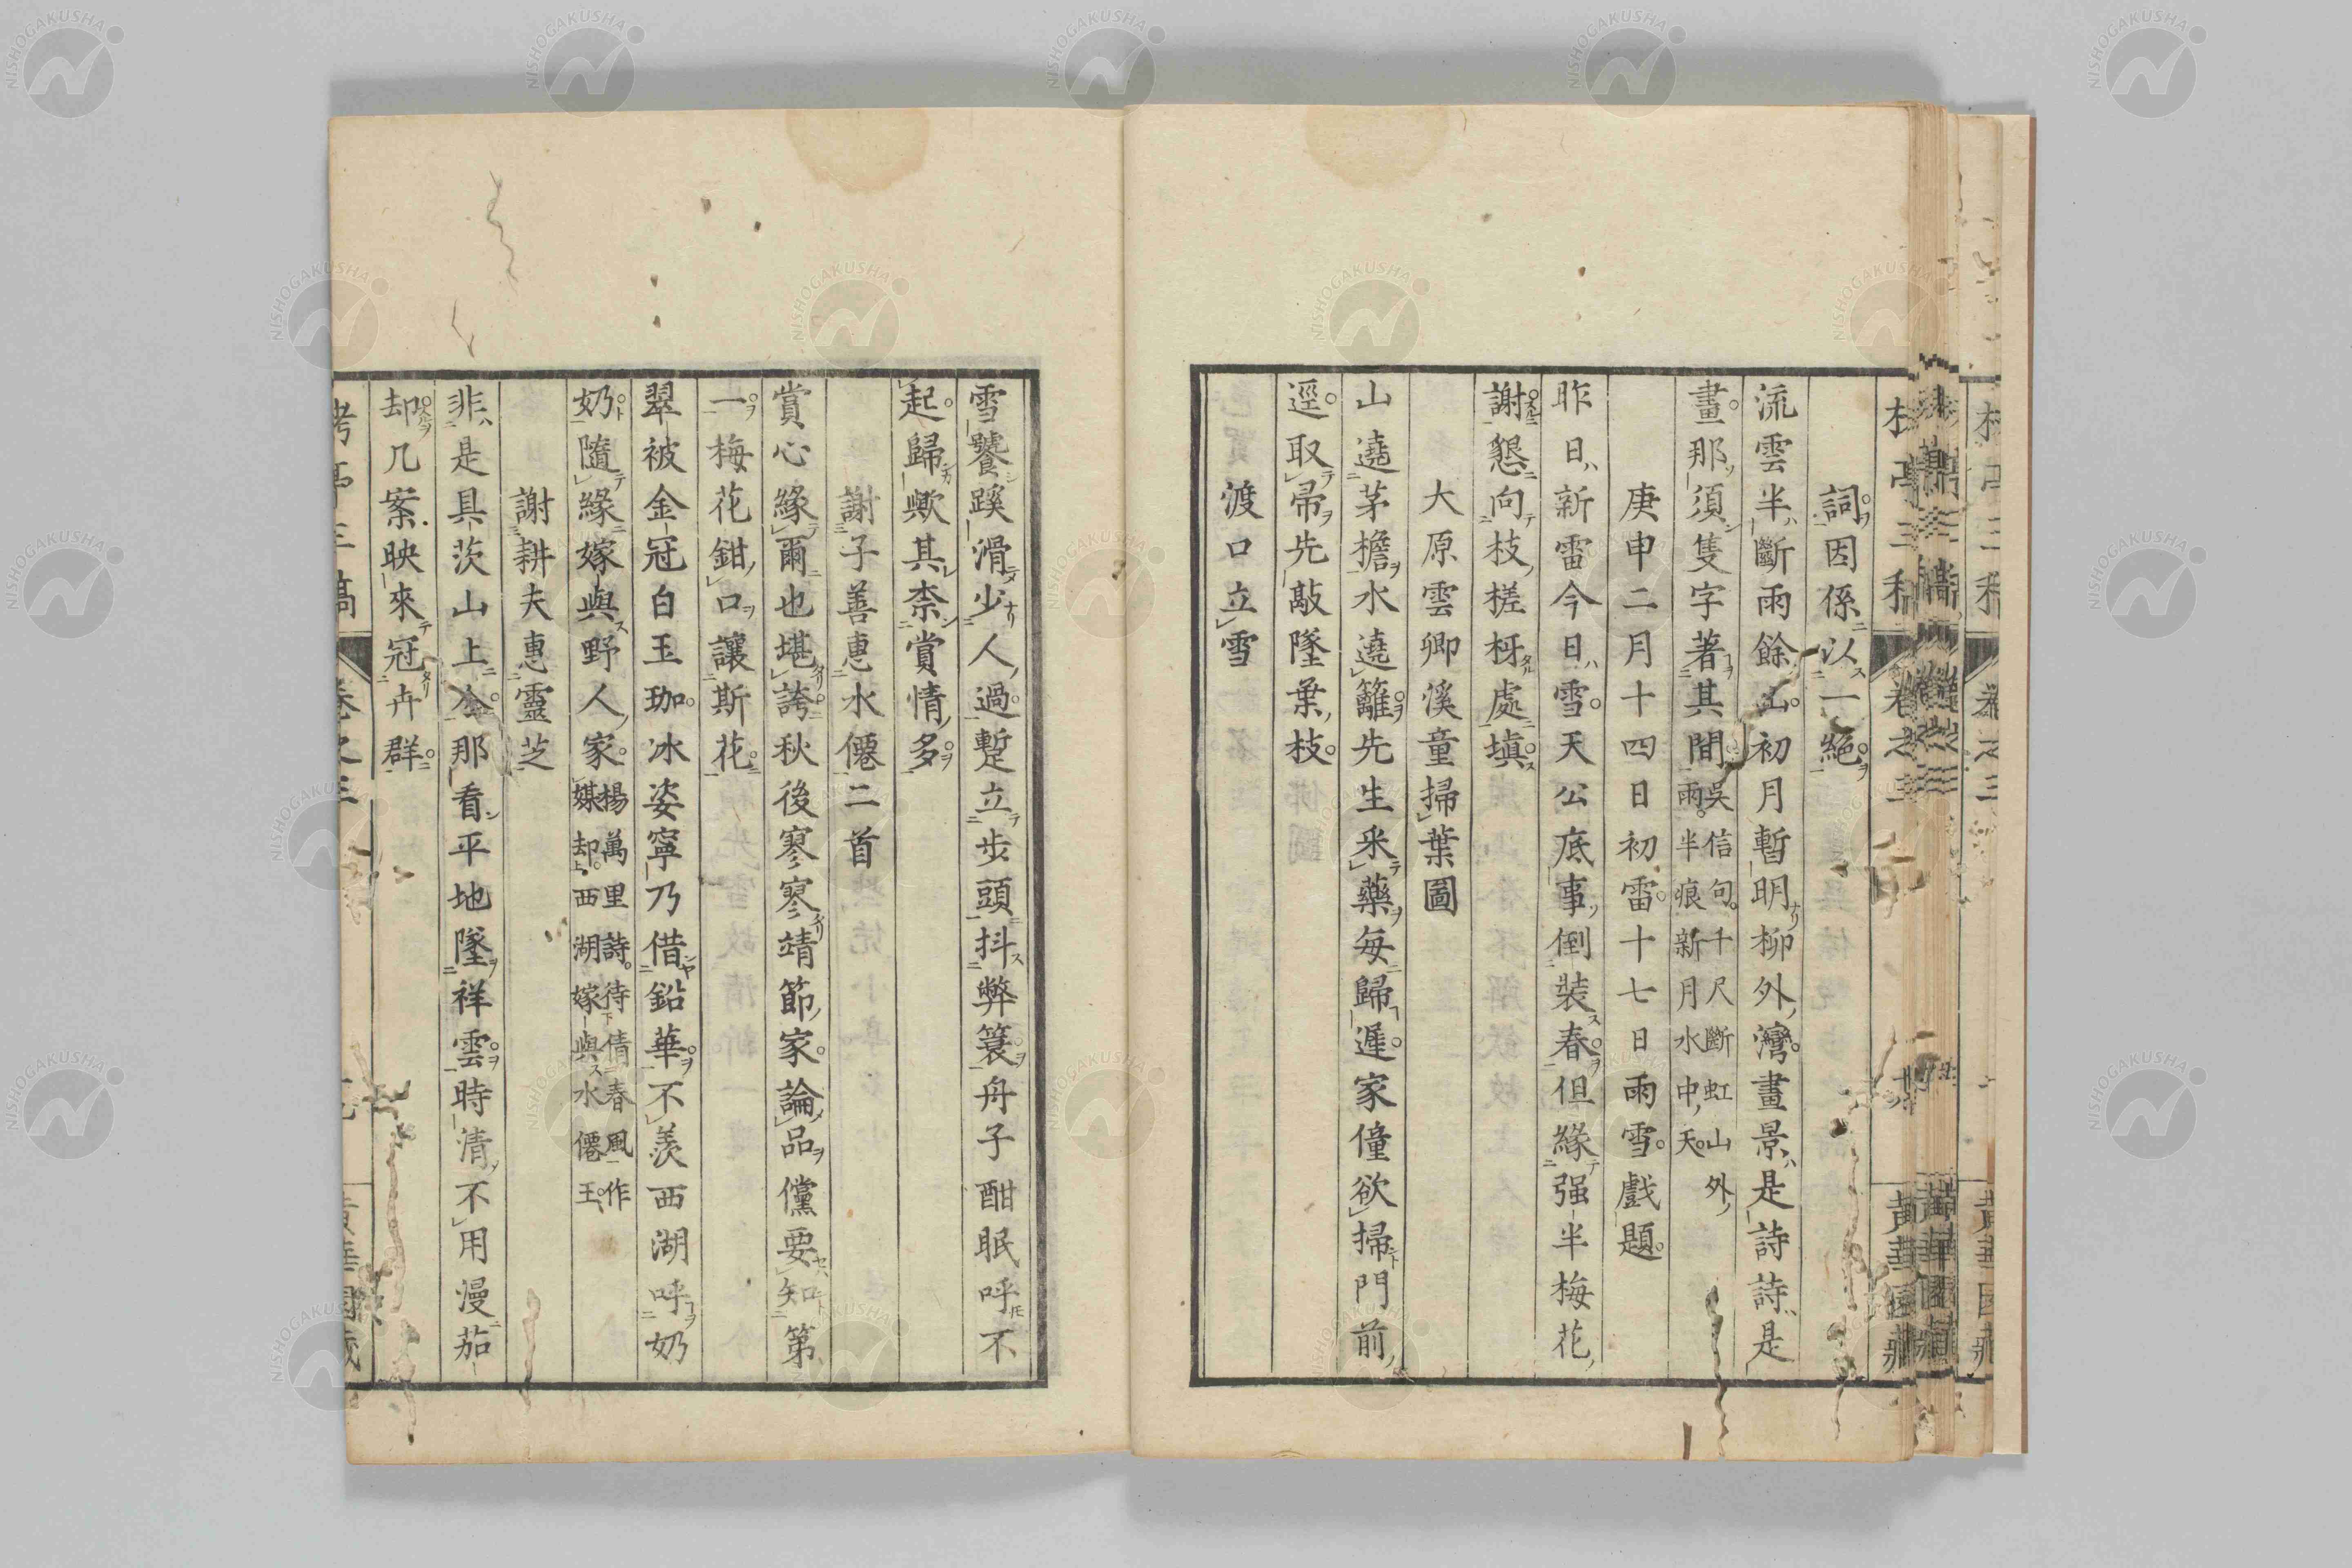 詞因係以一絕
流雲半斷雨餘山初月暫明柳外灣畫景是詩詩是
畫那須隻字著其間吳信句千尺斷虹山外雨半痕新月水中天
庚申二月十四日初雷十七日雨雪戲題
昨日新雷今日雪天公底事倒裝春但緣强半梅花
謝懇向枝槎枒處塡
大原雲卿溪童掃葉圖
山遶茅擔水遶籬先生釆藥每歸遲家僮欲掃門前
逕取帚先敲墜葉枝
渡口立雪
雪饕蹊滑少人過蹔立步頭抖弊簑舟子酣眠呼不
起歸歟其柰賞情多
謝子善惠水僊二首
賞心緣爾也堪誇秋後寥寥靖節家論品儻要知第
一梅花鉗口讓斯花
翠被金冠白玉珈冰姿寧乃借鉛華不羨西湖呼奶
奶隨緣嫁與野人家楊萬里詩待倩春風作媒却上西湖嫁與水僊王
謝耕夫惠靈芝
非是具茨山上今那看平地墜祥雲時清不用漫茄
却几案映來冠卉群
卷之三
NISHOGAKUSHA